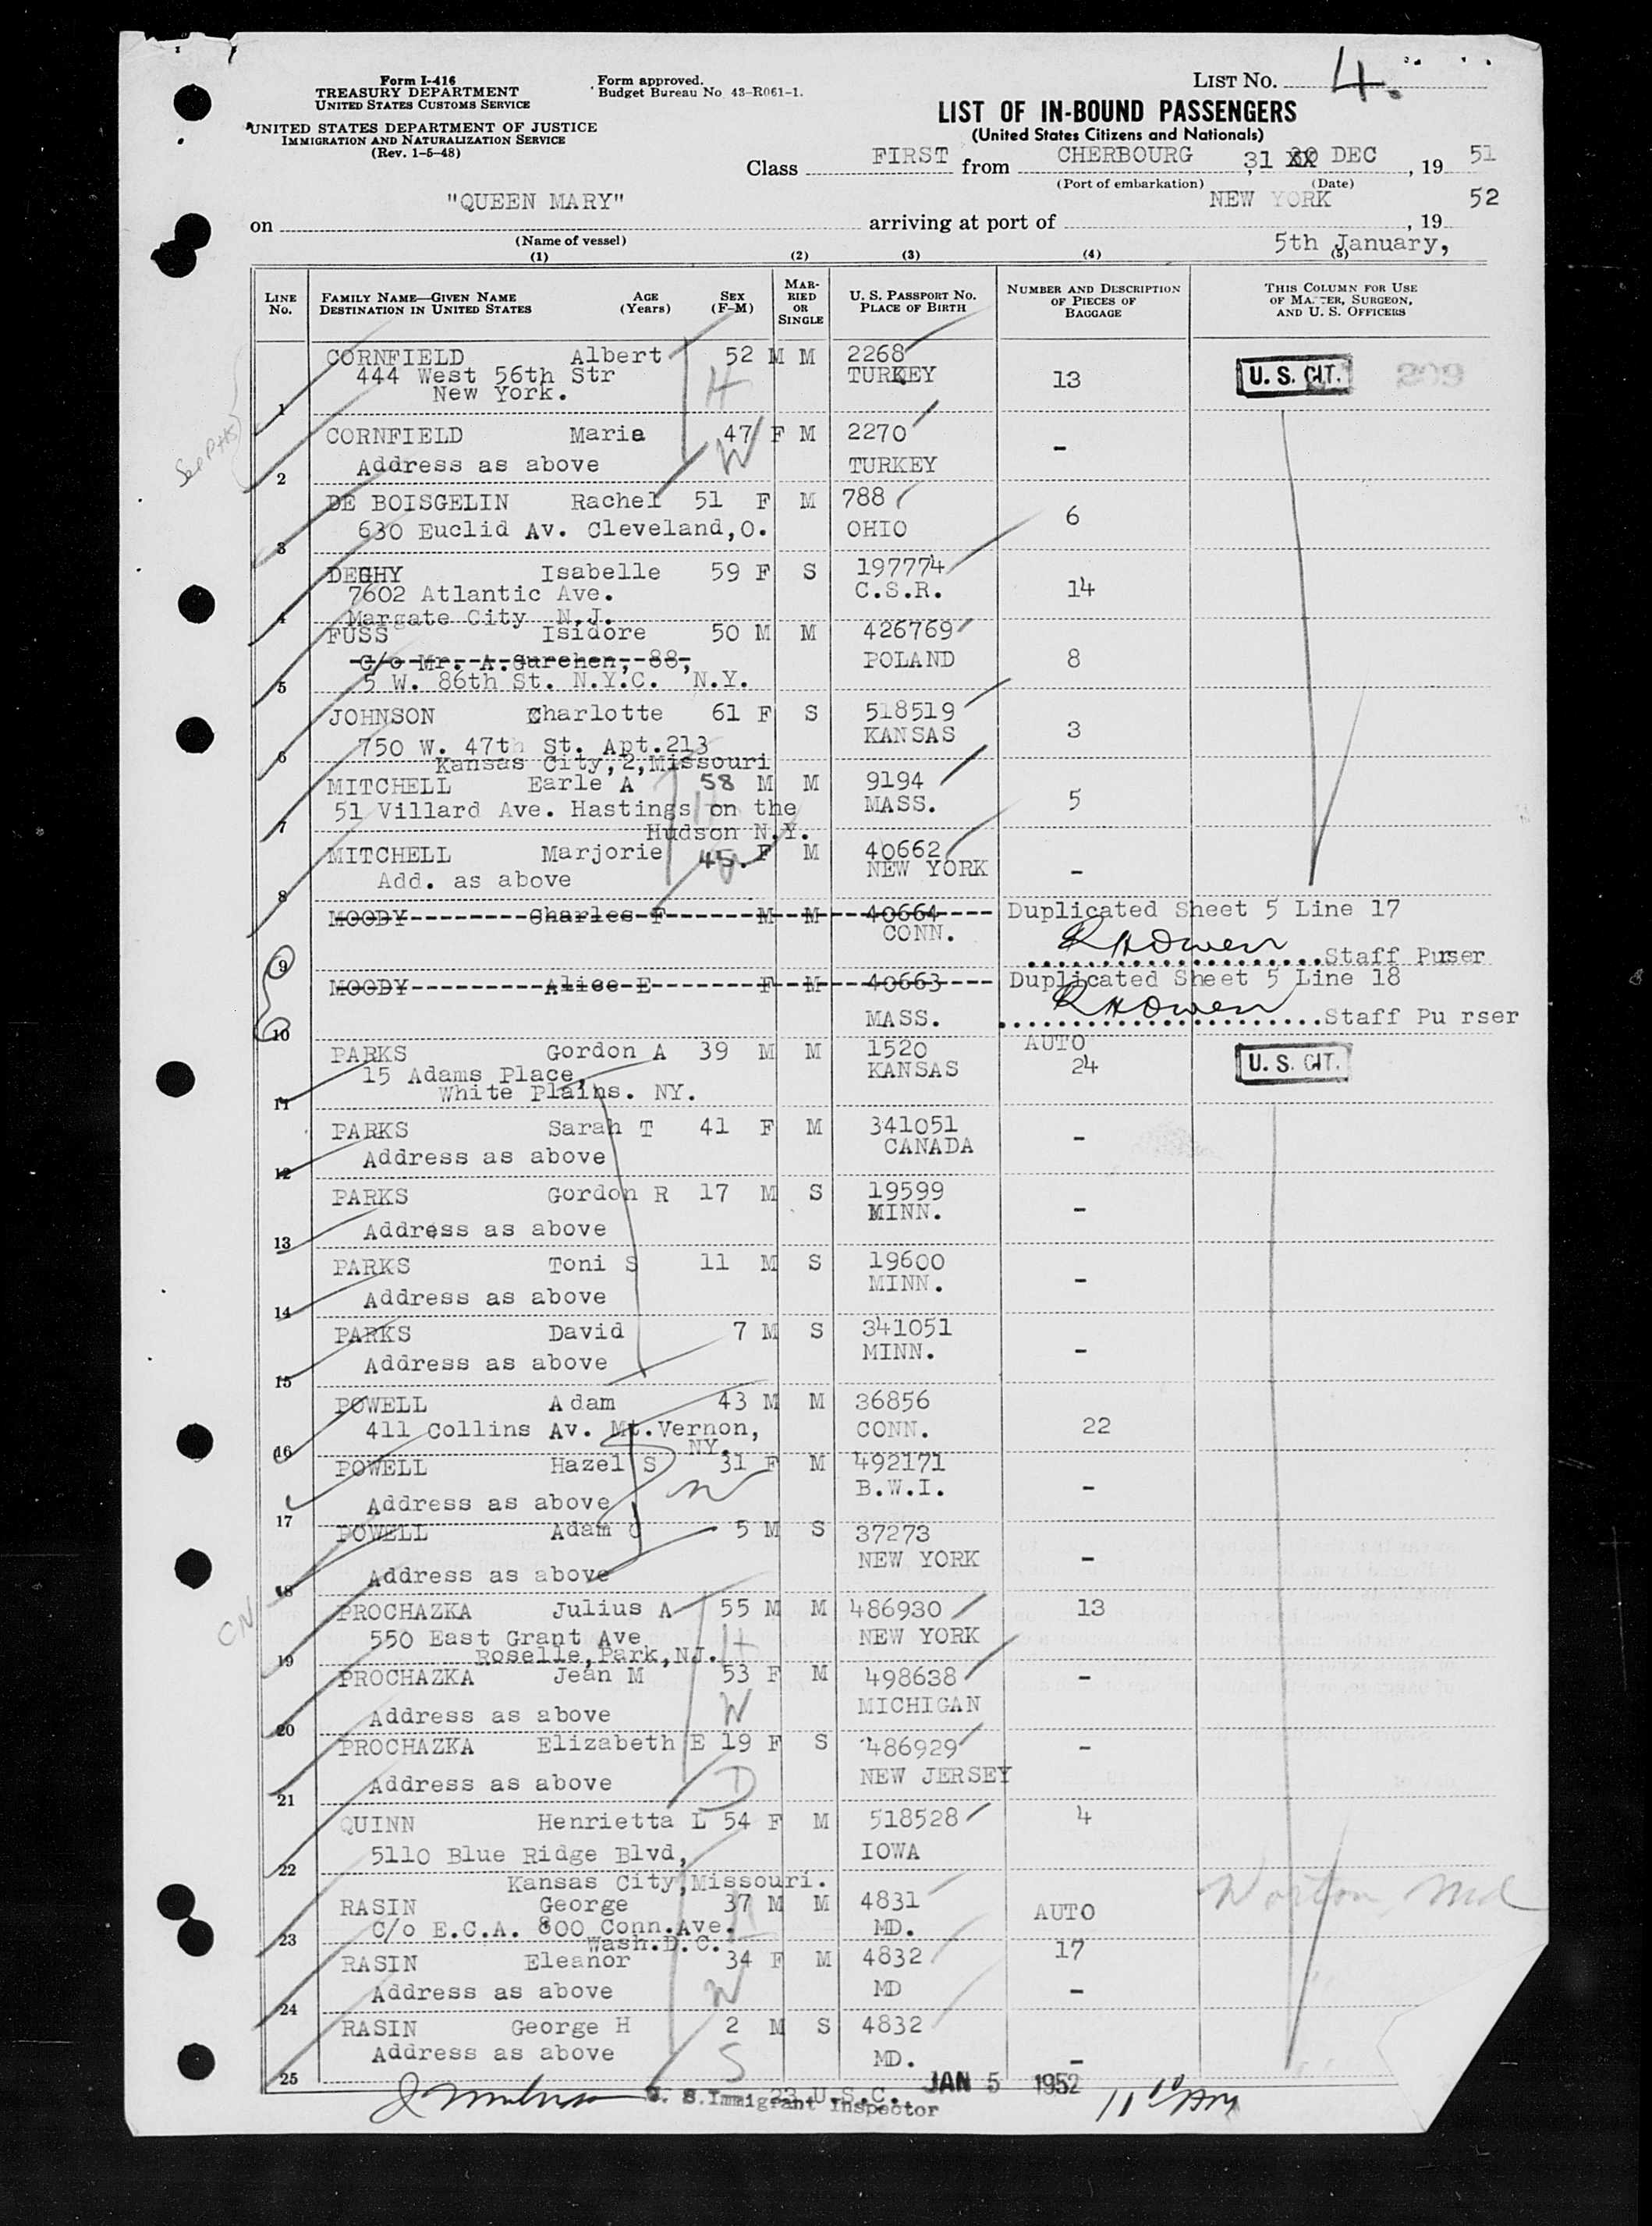 Form I-416
TREASURY DEPARTMENT
UNITED STATES CUSTOMS SERVICE
UNITED STATES DEPARTMENT OF JUSTICE
IMMIGRATION AND NATURALIZATION SERVICE
(Rev. 1-5-48)
Form approved.
Budget Bureau No. 43-R061-1.
LIST NO. 4.
LIST OF IN-BOUND PASSENGERS
(United States Citizens and Nationals)
Class FIRST from CHERBOURG, 31 DEC, 19 51
(Port of embarkation) (Date)
on "QUEEN MARY" arriving at port of NEW YORK, 19 52
(Name of vessel) 5th January,
(1) (2) (3) (4) (5)
LINE NO. FAMILY NAME—GIVEN NAME DESTINATION IN UNITED STATES AGE (Years) SEX (F-M) MARRIED OR SINGLE U. S. PASSPORT NO. PLACE OF BIRTH NUMBER AND DESCRIPTION OF PIECES OF BAGGAGE THIS COLUMN FOR USE OF MASTER, SURGEON, AND U. S. OFFICERS
CORNFIELD Albert 52 M M 2268
444 West 56th Str TURKEY 13 U. S. CIT. 209
New York. H
1
CORNFIELD Marie 47 F M 2270 -
Address as above W TURKEY
2
DE BOISGELIN Rachel 51 F M 788 6
630 Euclid Av. Cleveland,O. OHIO
3
DEGHY Isabelle 59 F S 197774
7602 Atlantic Ave. C.S.R. 14
4 Margate City N.J.
FUSS Isidore 50 M M 426769
C/o Mr. A.Gurchen, 88, POLAND 8
5 5 W. 86th St. N.Y.C. N.Y.
JOHNSON Charlotte 61 F S 518519
750 W. 47th St. Apt.213 KANSAS 3
6 Kansas City,2,Missouri
MITCHELL Earle A 58 M M 9194
51 Villard Ave. Hastings on the MASS. 5
7 Hudson N.Y. H
MITCHELL Marjorie 45. F M 40662
Add. as above W NEW YORK -
8
MOODY Charles F M M 40664 Duplicated Sheet 5 Line 17
CONN. R H Owen Staff Purser
9
MOODY Alice E F M 40663 Duplicated Sheet 5 Line 18
MASS. R H Owen Staff Pu rser
10
PARKS Gordon A 39 M M 1520 AUTO
15 Adams Place, KANSAS 24 U. S. CIT.
11 White Plains. NY.
PARKS Sarah T 41 F M 341051
Address as above CANADA -
12
PARKS Gordon R 17 M S 19599
Address as above MINN. -
13
PARKS Toni S 11 M S 19600
Address as above MINN. -
14
PARKS David 7 M S 341051
Address as above MINN. -
15
POWELL Adam 43 M M 36856
411 Collins Av. Mt.Vernon, CONN. 22
16 NY.
POWELL Hazel S 31 F M 492171
Address as above W B.W.I. -
17
POWELL Adam C 5 M S 37273
Address as above NEW YORK -
18
CN
PROCHAZKA Julius A 55 M M 486930 13
550 East Grant Ave H NEW YORK
19 Roselle,Park,NJ.
PROCHAZKA Jean M 53 F M 498638 -
Address as above W MICHIGAN
20
PROCHAZKA Elizabeth E 19 F S 486929 -
Address as above D NEW JERSEY
21
QUINN Henrietta L 54 F M 518528 4
5110 Blue Ridge Blvd, IOWA
22 Kansas City,Missouri.
RASIN George 37 M M 4831 AUTO Worton, Md
C/o E.C.A. 800 Conn.Ave. MD.
23 Wash.D.C. 17
RASIN Eleanor 34 F M 4832
Address as above W MD -
24
RASIN George H 2 M S 4832
Address as above S MD. -
25
23 U.S.C. JAN 5 1952 11 10 AM
U. S. Immigrant Inspector